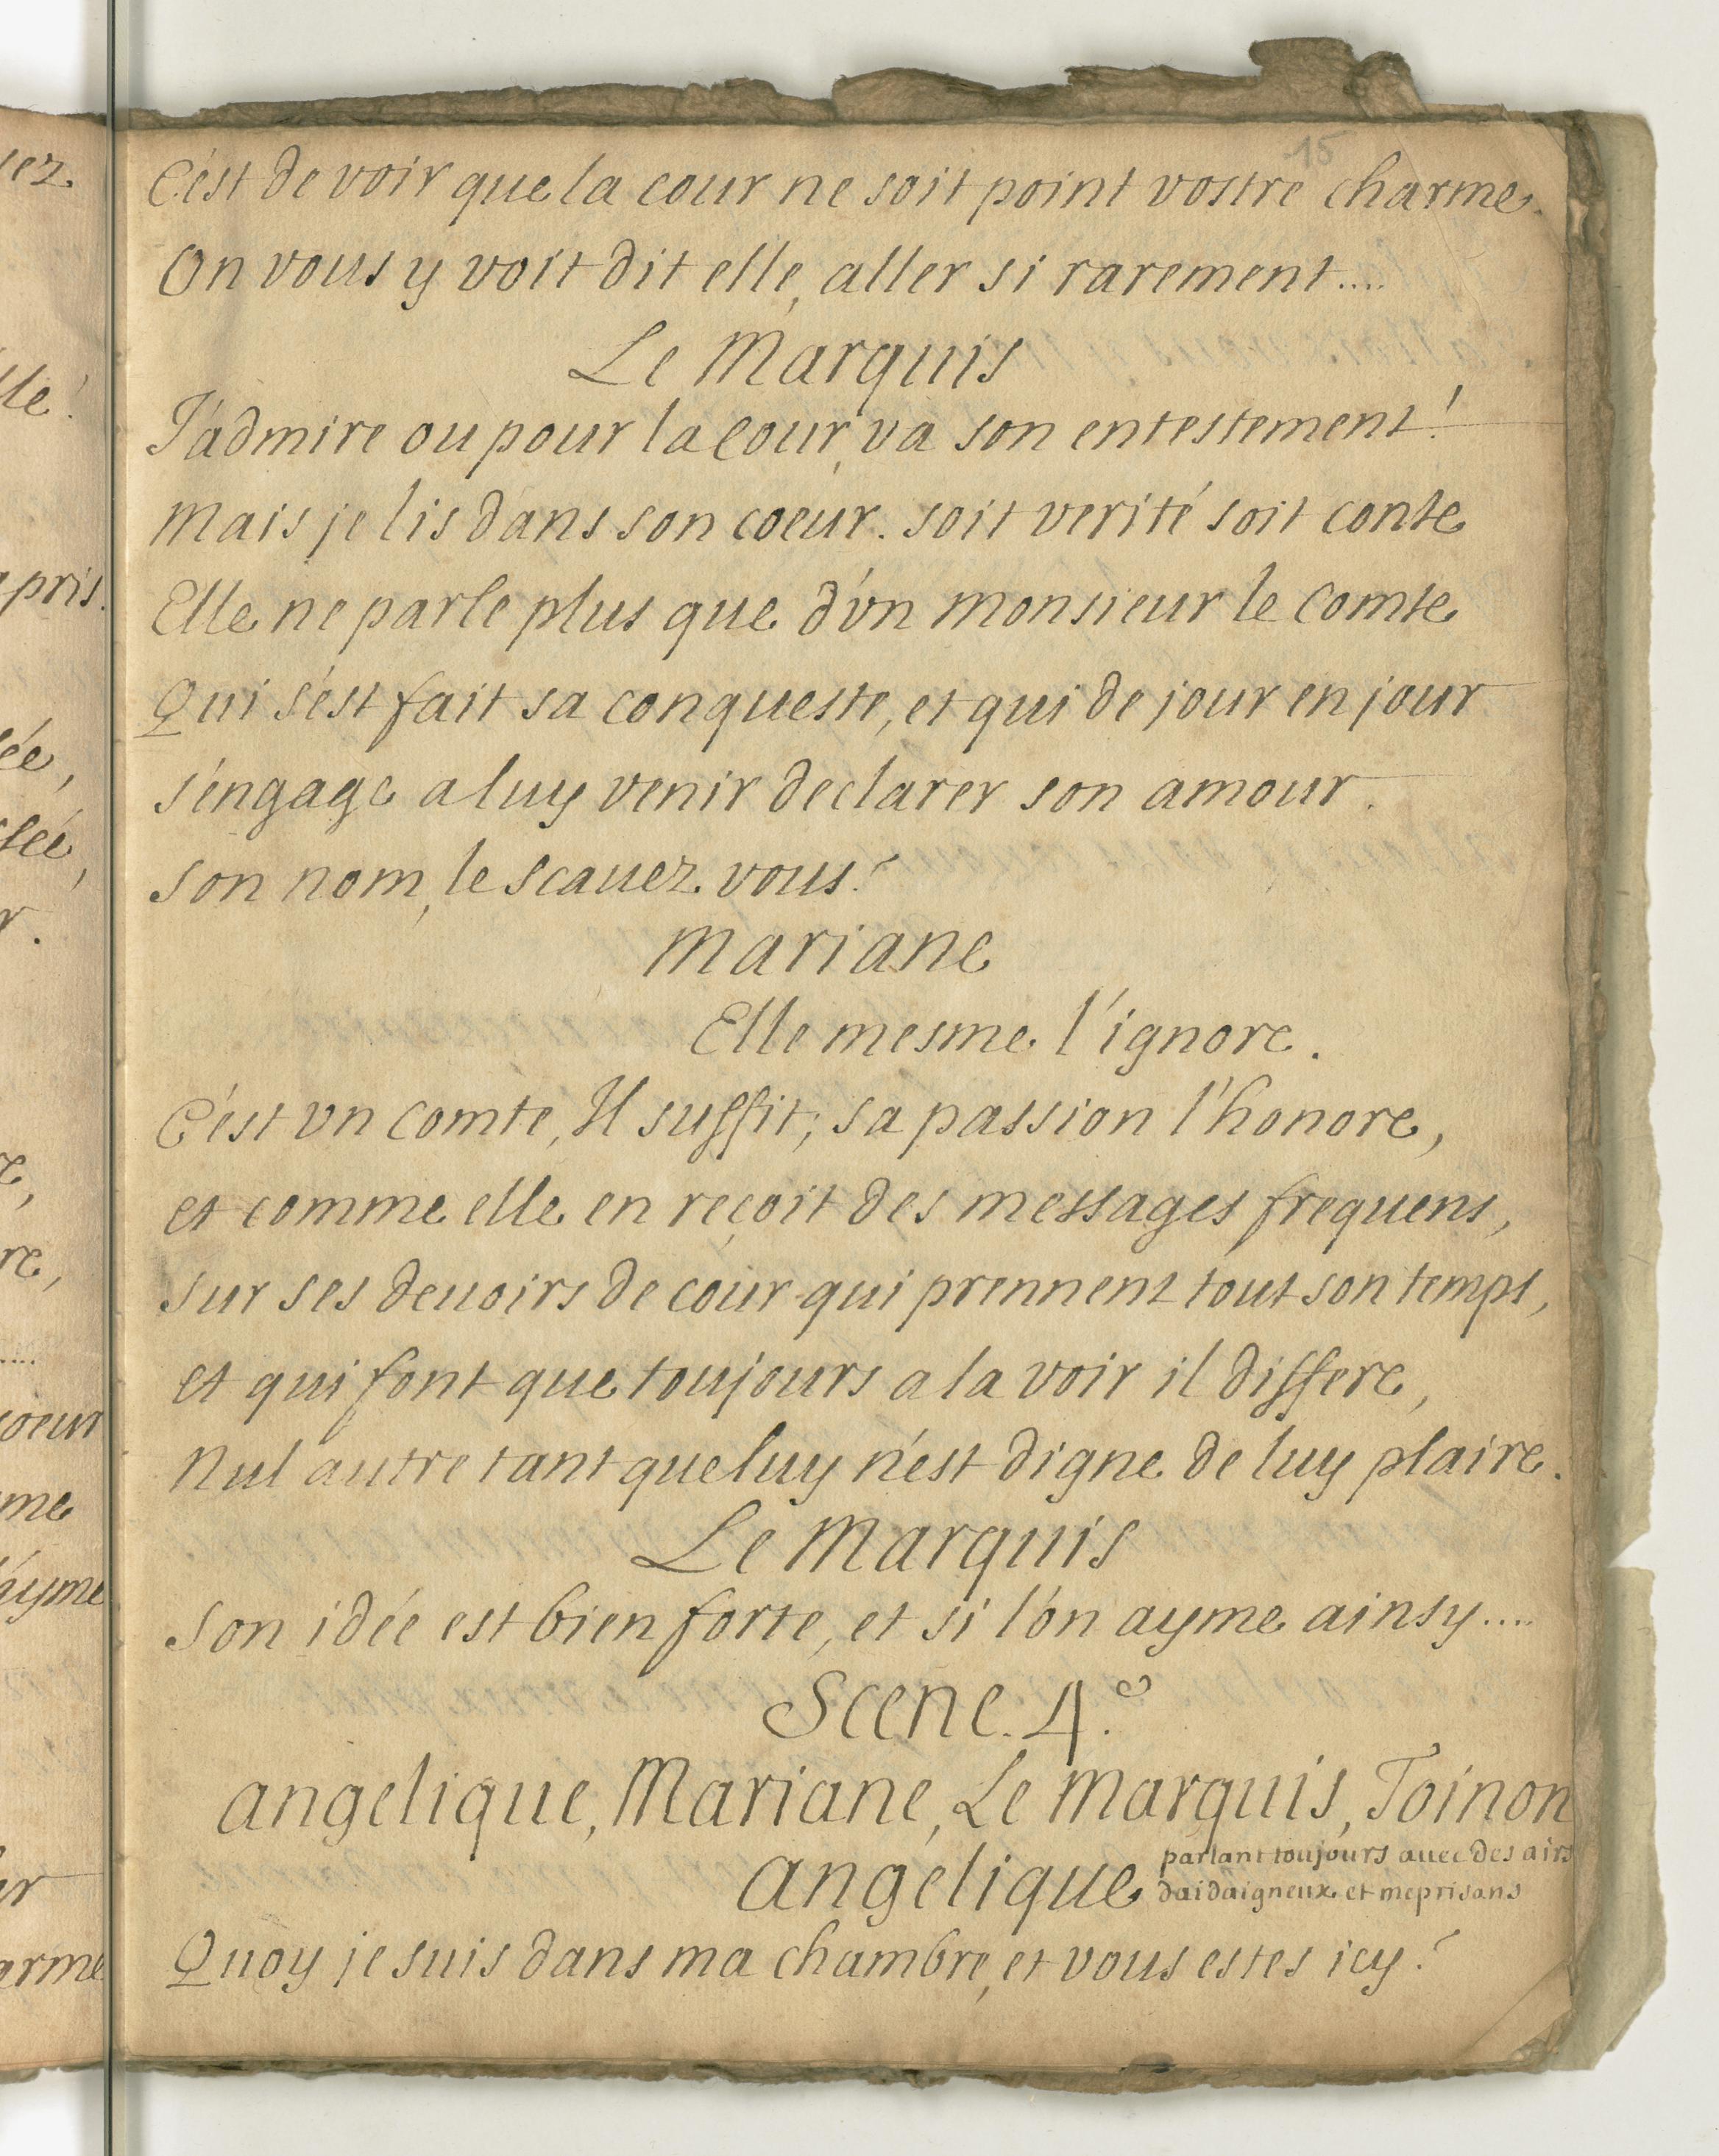 15
C'est de voir que la cour ne soit point vostre charme.
On vous y voit dit elle, aller si rarement....
Le Marquis
J'admire ou pour la Cour, va son entestement!
Mais je lis dans son coeur. soit verité soit conte
Elle ne parle plus que d'vn monsieur le Comte
Qui s'est fait sa conqueste, et qui de jour en jour
s'engage a luy venir declarer son amour.
son nom, le scauez. vous?
Mariane
Elle mesme l'ignore.
C'est vn Comte, Il suffit; sa passion l'honore,
et comme elle en reçoit des messages frequens,
sur ses deuoirs de cour qui prennent tout son temps,
et qui font que toujours a la voir il differe,
Nul autre tant que luy n'est digne de luy plaire.
Le Marquis
Son idée est bien forte, et si l'on ayme ainsy....
Scene. 4.e
angelique, Mariane, Le Marquis, Toinon
angelique parlant toujours auec des airs
daidaigneux et meprisans
Quoy je suis dans ma chambre, et vous estes icy?